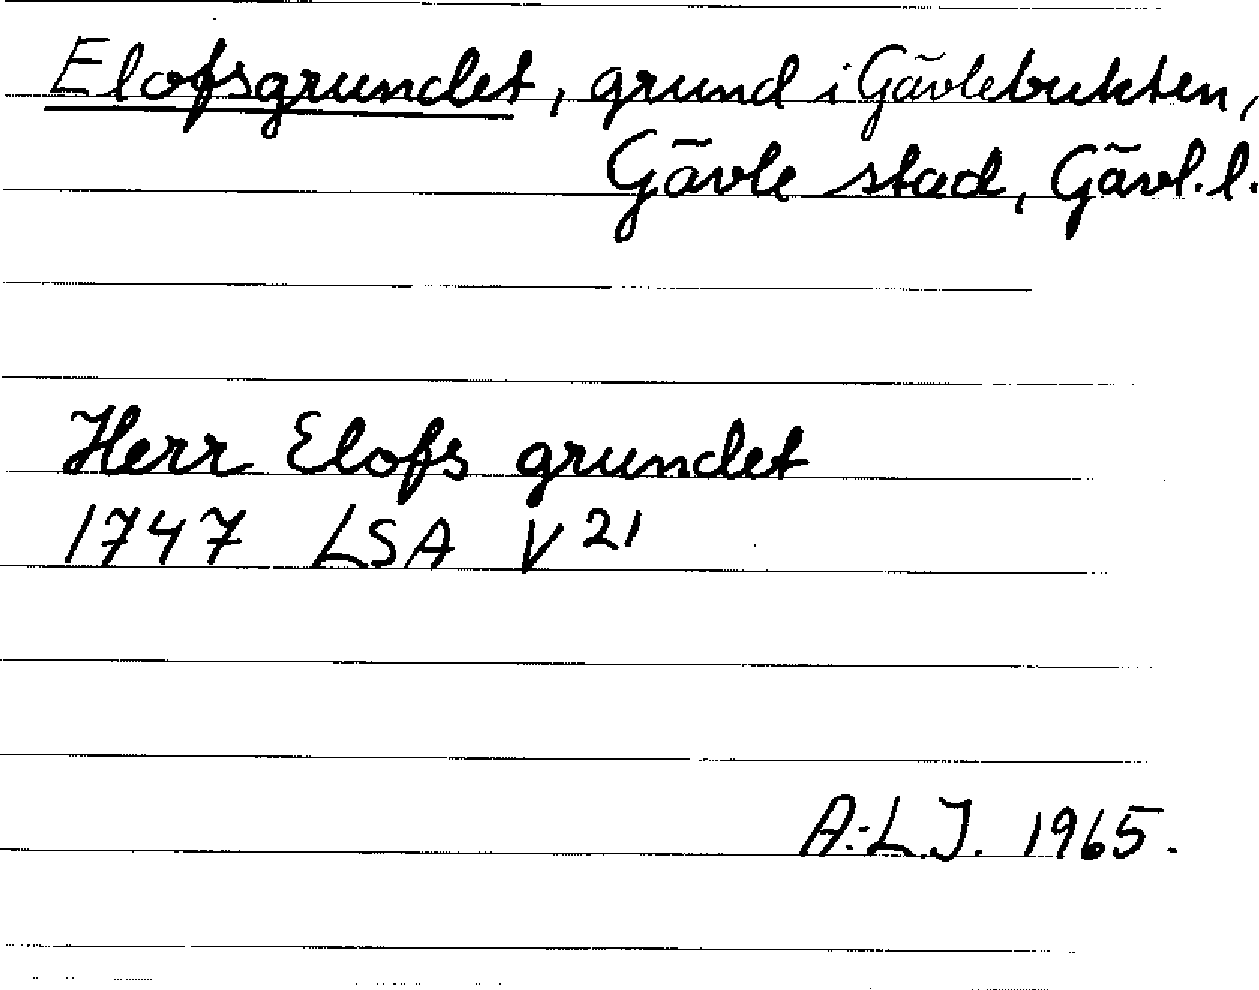 Elofsgrundet, grund i Gävlebukten,
Gävle stad, Gävl. l.
Herr Elofs grundet
1747 LSA V 21
A.-L.J. 1965.